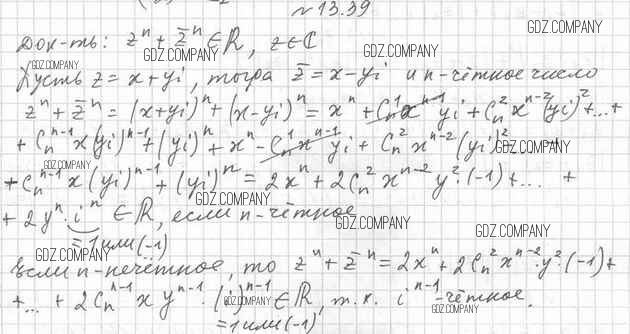 №13.39
Док-ть: zⁿ + z̄ⁿ ∈ ℝ, z ∈ ℂ
Пусть z = x + yi, тогда z̄ = x - yi и n-чётное число
zⁿ + z̄ⁿ = (x+yi)ⁿ + (x-yi)ⁿ = xⁿ + C_n^1 x^{n-1} yi + C_n^2 x^{n-2} (yi)² + ... +
+ C_n^{n-1} x(yi)^{n-1} + (yi)ⁿ + xⁿ - C_n^1 x^{n-1} yi + C_n^2 x^{n-2} (yi)²
+ C_n^{n-1} x (yi)^{n-1} + (yi)ⁿ = 2xⁿ + 2C_n^2 x^{n-2} y² · (-1) + ... +
+ 2yⁿ · iⁿ ∈ ℝ, если n-чётное
= 1 или (-1)
Если n-нечётное, то zⁿ + z̄ⁿ = 2xⁿ + 2C_n^2 x^{n-2} · y² · (-1) +
+ ... + 2C_n^{n-1} x y^{n-1} · (i)^{n-1} ∈ ℝ, т.к. i^{n-1} - чётное.
= 1 или (-1)
GDZ.COMPANY
GDZ.COMPANY
GDZ.COMPANY
GDZ.COMPANY
GDZ.COMPANY
GDZ.COMPANY
GDZ.COMPANY
GDZ.COMPANY
GDZ.COMPANY
GDZ.COMPANY
GDZ.COMPANY
GDZ.COMPANY
GDZ.COMPANY